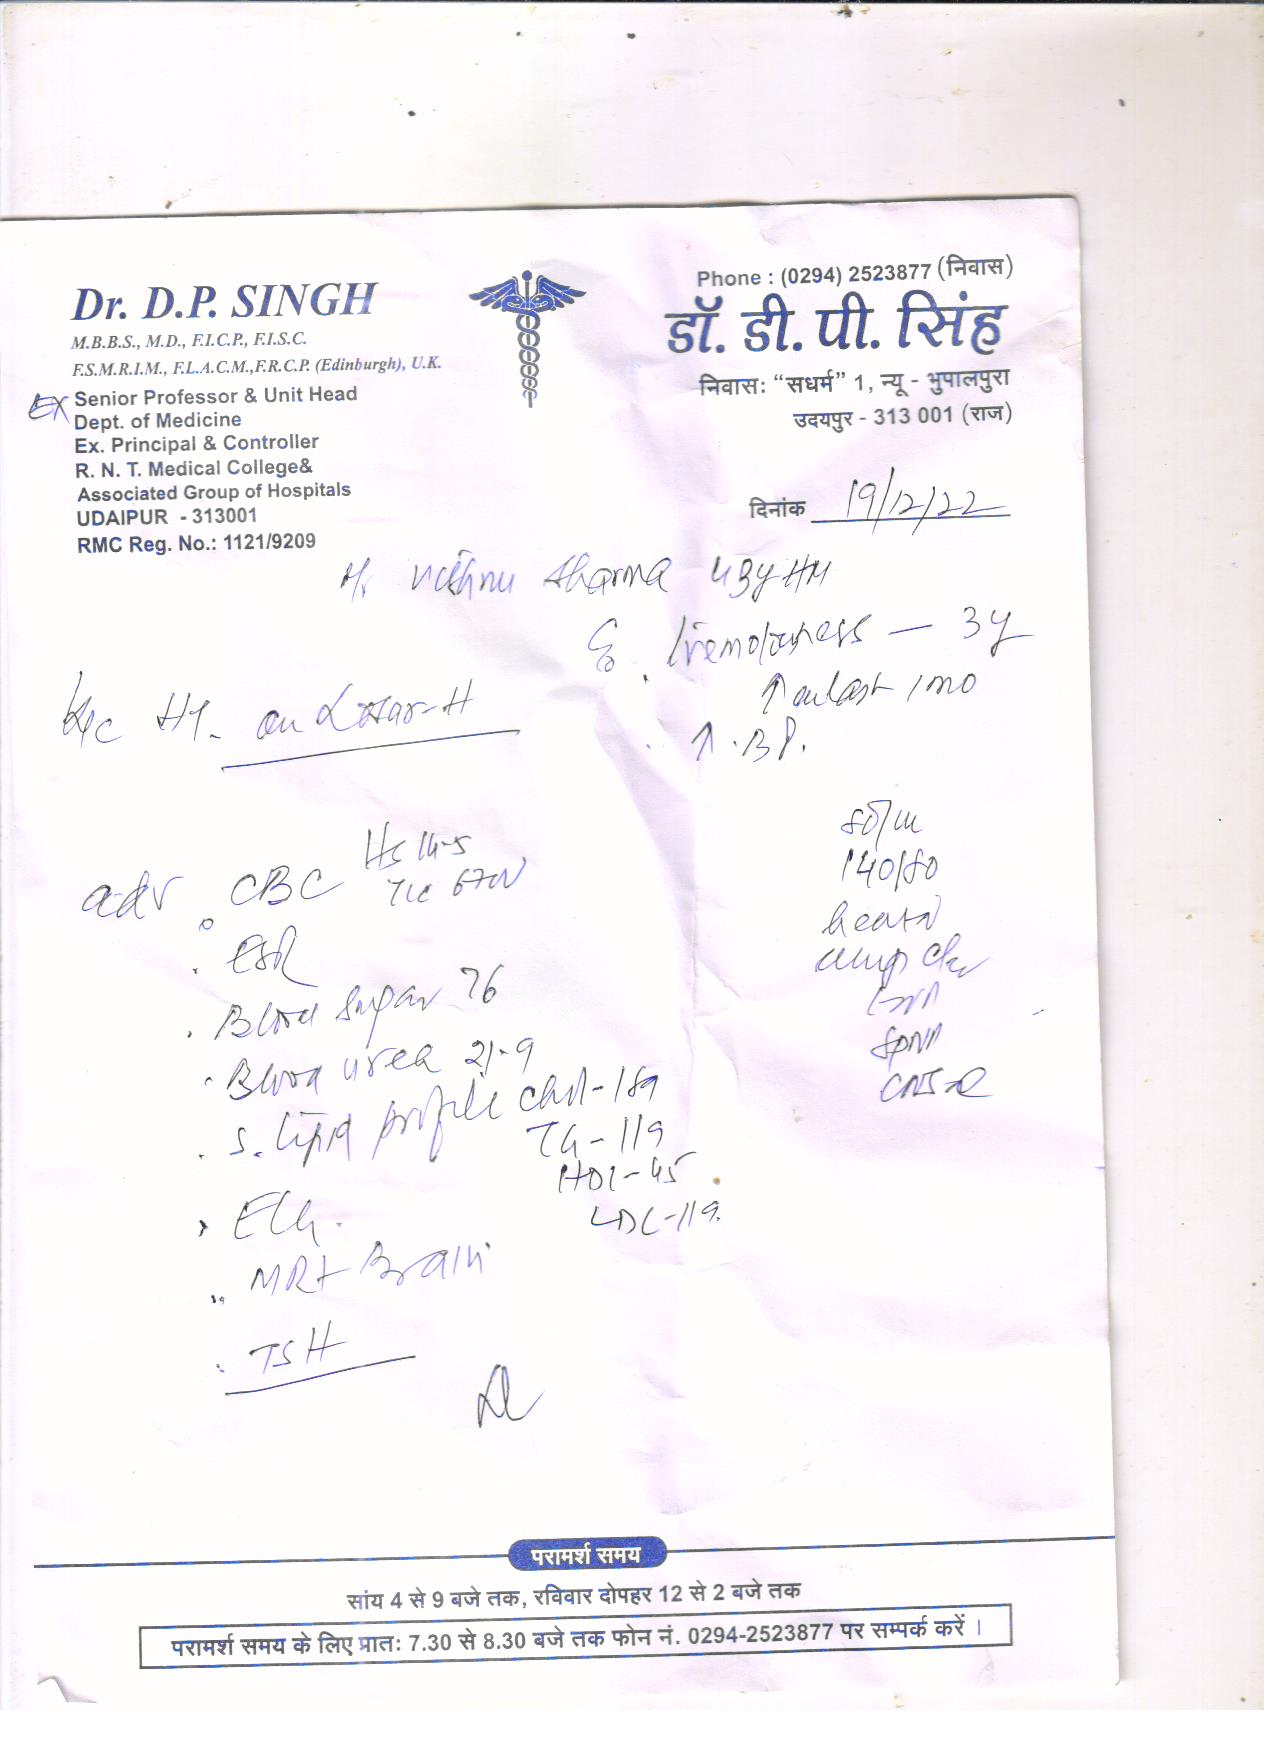 Phone : (0294) 2523877 (निवास)
Dr. D.P. SINGH
डॉ. डी. पी. सिंह
M.B.B.S., M.D., F.I.C.P., F.I.S.C.
F.S.M.R.I.M., F.L.A.C.M.,F.R.C.P. (Edinburgh), U.K.
निवास: “सधर्म” 1, न्यू - भुपालपुरा
उदयपुर - 313 001 (राज)
EX Senior Professor & Unit Head
Dept. of Medicine
Ex. Principal & Controller
R. N. T. Medical College&
Associated Group of Hospitals
UDAIPUR - 313001
RMC Reg. No.: 1121/9209
दिनांक 19/12/22
Vishnu Sharma 43y
— 3y
↑ last 1 mo
↑ . BP.
on Losar-H
140/80
adv CBC Hb 14.5
TLC
ESR
Blood Sugar 76
Blood urea 21.9
S. lipid profile Chol - 189
TG - 119
HDL - 45
LDL - 119
ECG.
MRI Brain
TSH
परामर्श समय
सांय 4 से 9 बजे तक, रविवार दोपहर 12 से 2 बजे तक
परामर्श समय के लिए प्रातः 7.30 से 8.30 बजे तक फोन नं. 0294-2523877 पर सम्पर्क करें ।